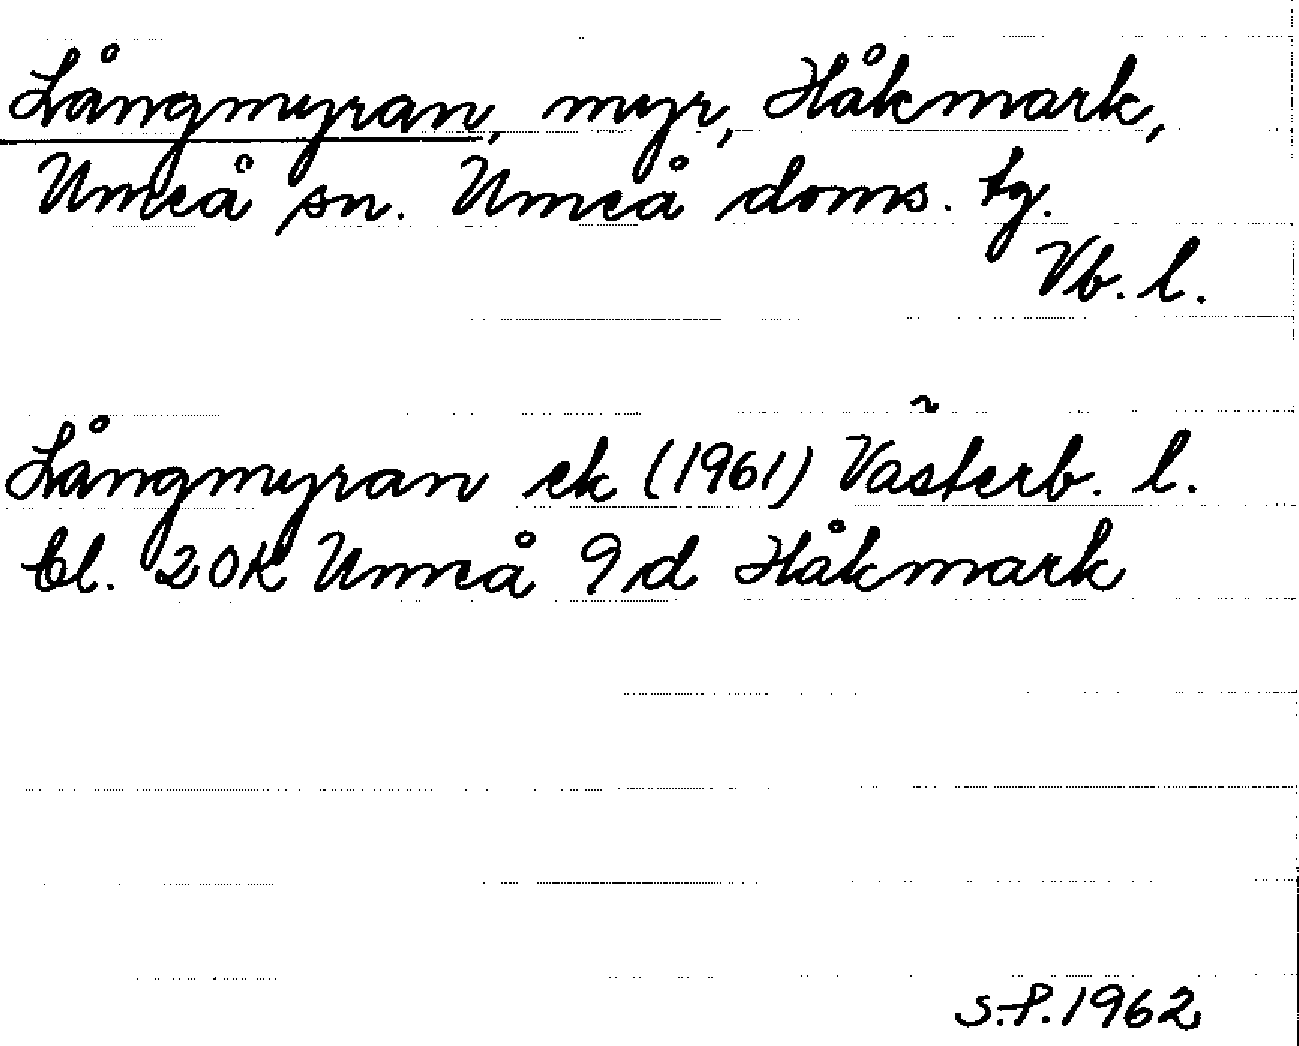 Långmyran, myr, Håkmark,
Umeå sn. Umeå doms. tg.
Vb. l.
Långmyran ek (1961) Västerb. l.
bl. 20K Umeå 9d Håkmark
S.P. 1962